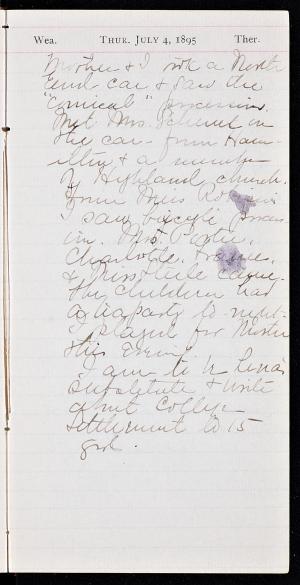 Wea. THUR. JULY 4, 1895 Ther.
Mother & I rode a North
end car & saw the
"comical" procession.
Met Mrs. in
the car from Ham-
ilton & a member
of Highland church.
From Miss
I saw bicycle proces
in. Mrs. Porter,
Charlotte, Frances,
& Miss came.
The children had
a tea party to night.
I played for Mother
this even'.
I am to be Lena's
substitute & write
about College
Settlement to 15
grd.